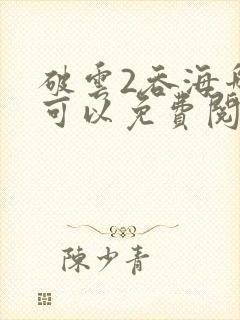 破雲2吞海
可以免費閱
陳少青